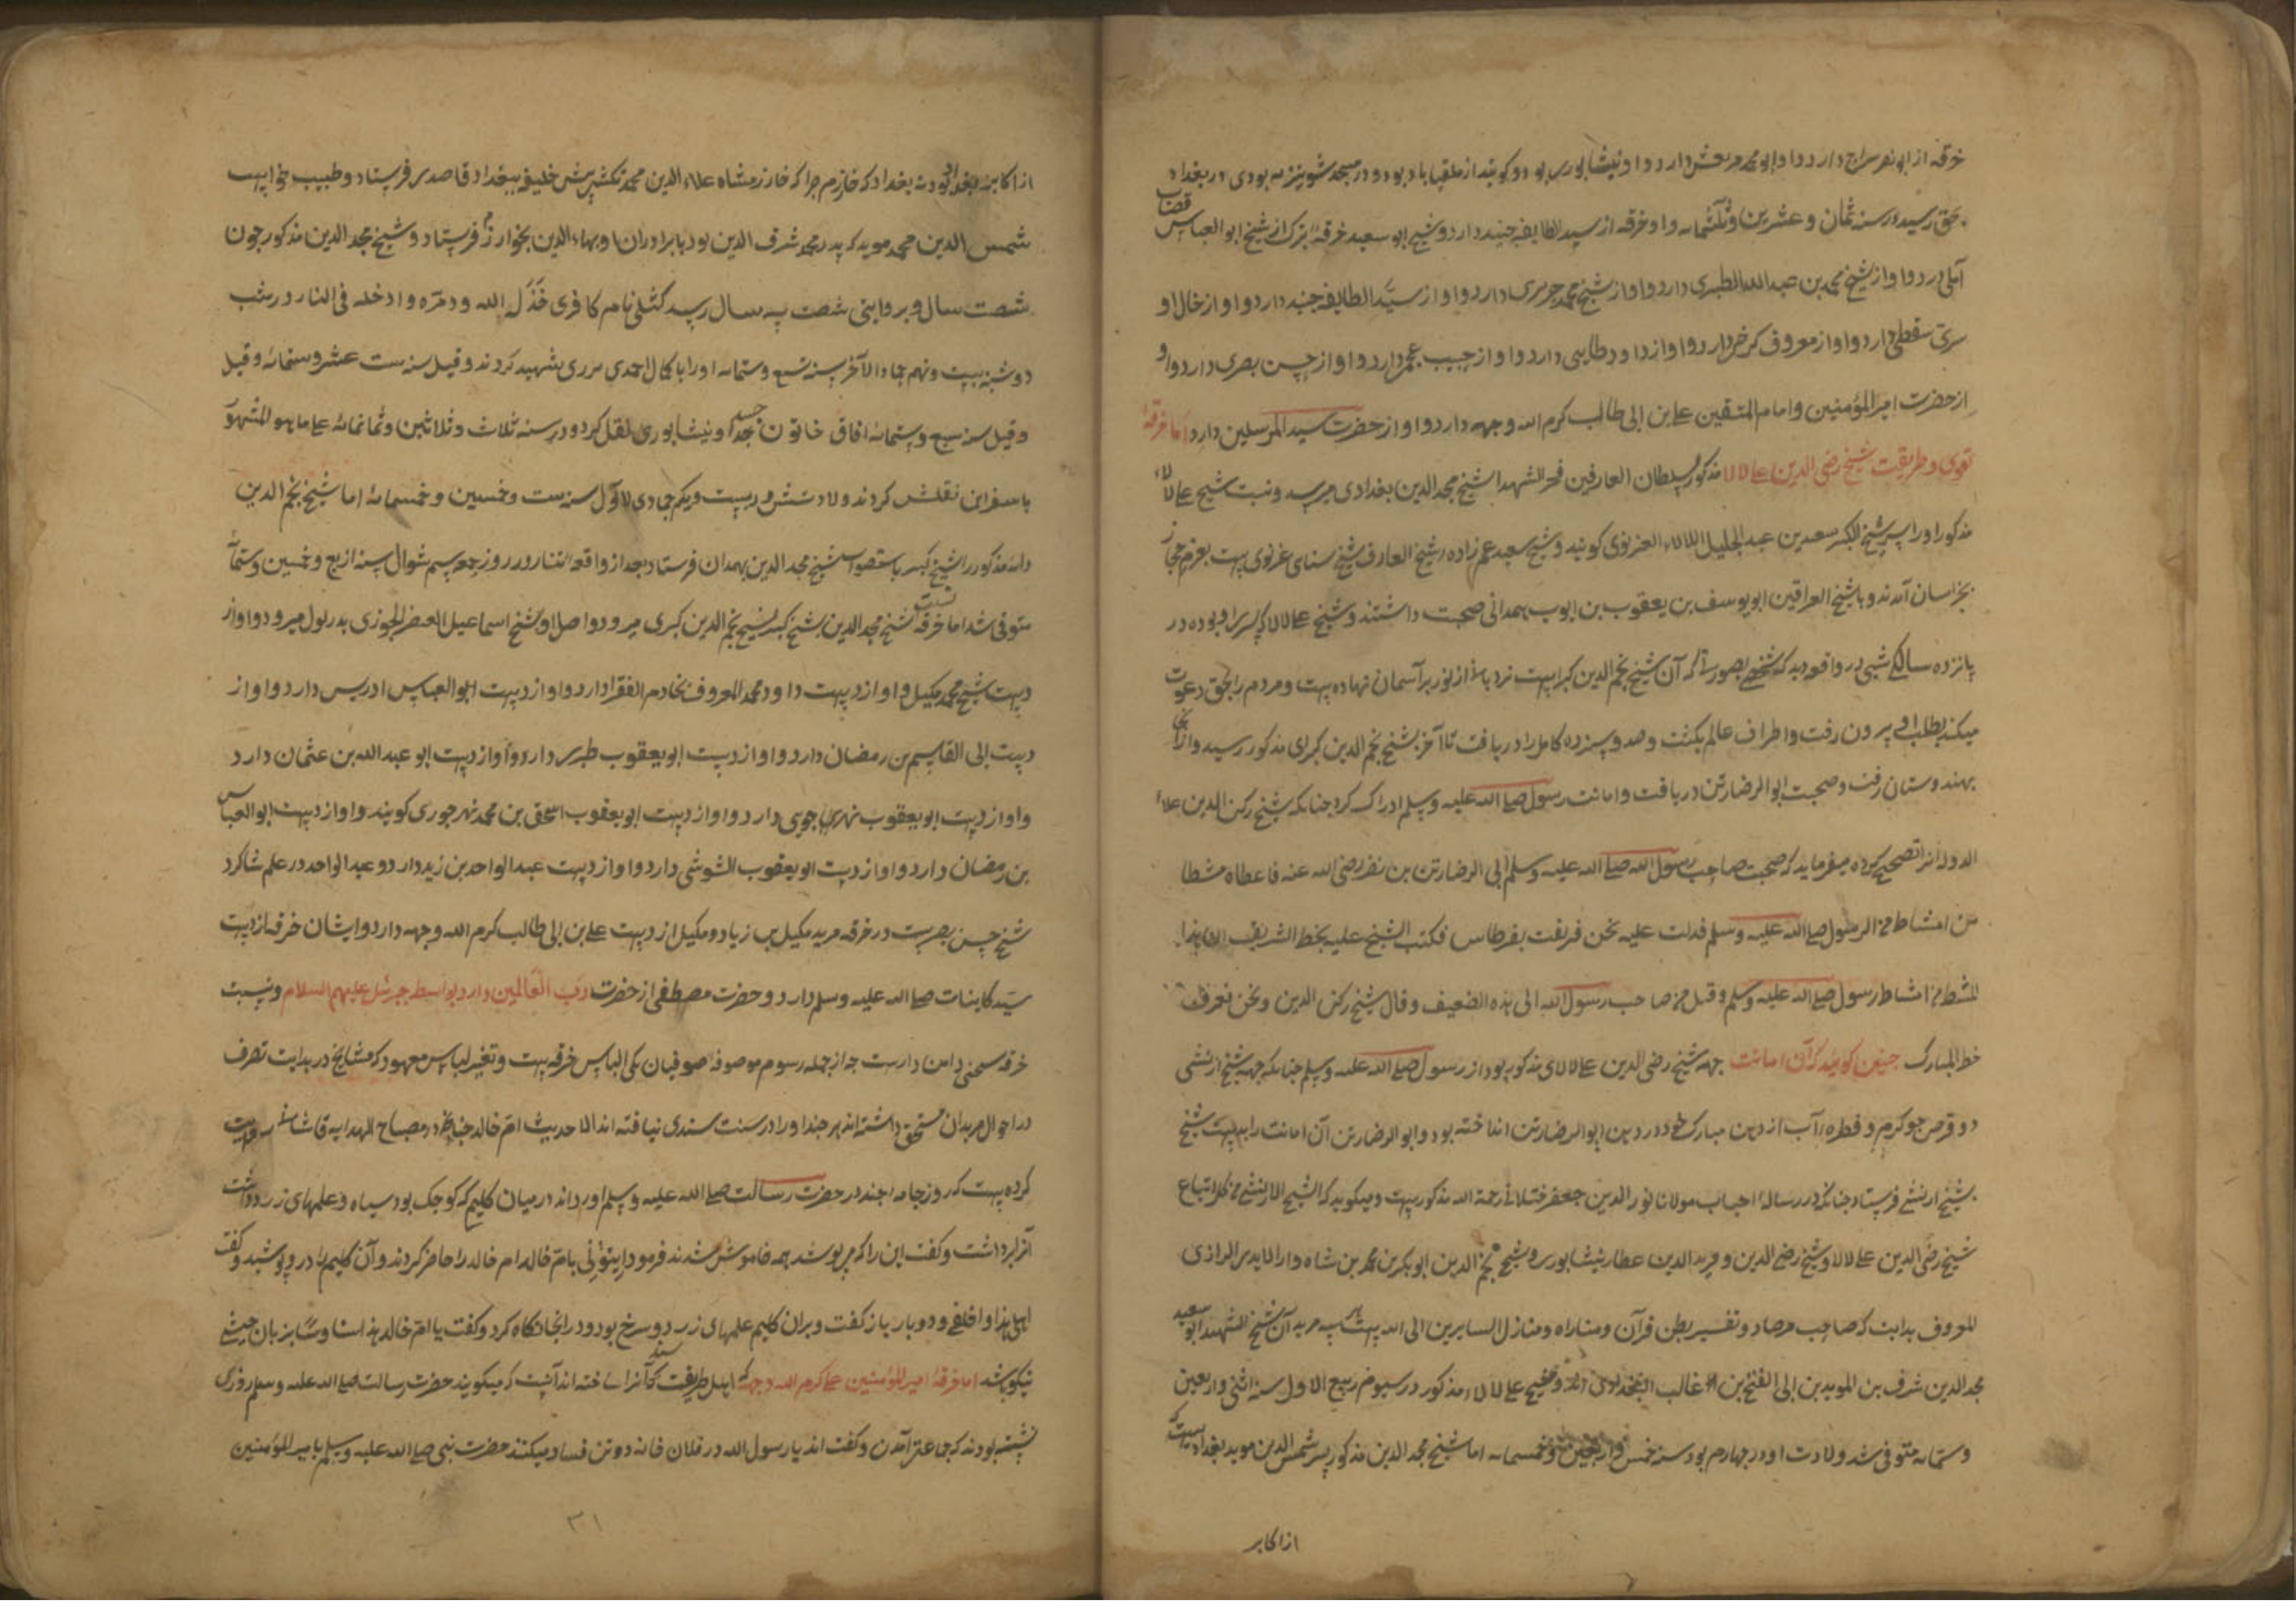 خرقه از ابو نصر سراج دارد و او از ابو محمد مرتعش دارد و او نیشابوری بود و کویند از ملقباباد بود و در مسجد شونیزیه بودی در بغداد
بحق رسید در سنه ثمان و عشرین و ثلثمایه و او خرقه از سید الطایفه جنید دارد و شیخ ابو سعید خرقهٔ تبرک از شیخ ابو العباس قصاب
آملی دارد و او از شیخ محمد بن عبد الله الطبری دارد و او از شیخ محمد جریری دارد و او از سید الطایفه جنید دارد و او از خال او
سری سقطی دارد و او از معروف کرخی دارد و او از داود طایی دارد و او از حبیب عجمی دارد و او از حسن بصری دارد و او
از حضرت امیر المؤمنین و امام المتقین علی بن ابی طالب کرم الله وجهه دارد و او از حضرت سید المرسلین دارد اما خرقهٔ
تقوی و طریقت شیخ رضی الدین علی لالا مذکور بسلطان العارفین فخر الشهدا شیخ مجد الدین بغدادی میرسد و نسبت شیخ علی لالاء
مذکور او را پسر شیخ الکبیر سعد بن عبد الجلیل اللالاء الغزنوی کویند و شیخ سعید عم زادهٔ شیخ العارف شیخ سنای غزنوی است بعزم حجاز
بخراسان آمدند و با شیخ العراقین ابو یوسف بن یعقوب بن ایوب همدانی صحبت داشتند و شیخ علی لالا که پسر او بوده در
پانزده سالکی شبی در واقعه دید که شخصی بصورتی که آن شیخ نجم الدین کبرا است نردبانی از نور بر آسمان نهاده است و مردم را بحق دعوت
میکند بطلب او بیرون رفت و اطراف عالم بکشت و صد و سیزده کامل را دریافت تا آخر بشیخ نجم الدین کبرای مذکور رسید و از آنجا
بهندوستان رفت و صحبت ابو الرضا رتن دریافت و امانت رسول صلی الله علیه وسلم ادراک کرد چنانکه شیخ رکن الدین علاء
الدوله آنرا تصحیح کرده میفرماید که صحبت صاحب رسول الله صلی الله علیه وسلم ابی الرضا رتن بن نصر رضی الله عنه فاعطاه مشطا
من امشاط الرسول صلی الله علیه وسلم
المشط من امشاط رسول صلی الله علیه وسلم وقبل من صاحب رسول الله الی هذه الضعیف وقال شیخ رکن الدین ونحن نعرف
خط المبارک چنین کویند که آن امانت جهه شیخ رضی الدین علی لالای مذکور بود از رسول صلی الله علیه وسلم چنانکه جهه شیخ ارنشی
دو قرص جو کرم و قطرهٔ آب از دهن مبارک خود در دهن ابو الرضا رتن انداخته بود و ابو الرضا رتن آن امانت را بدست شیخ
بشیخ ارنشی فرستاد چنانکه در رسالهٔ احباب مولانا نور الدین جعفر ختلانی رحمة الله مذکور است و میکوید که الشیخ الارنشی من کل اتباع
شیخ رضی الدین علی لالا و شیخ رضی الدین و فرید الدین عطار نیشابوری و شیخ نجم الدین ابو بکر بن محمد بن شاه وار الایدی الرازی
المعروف بدایت که صاحب مرصاد و تفسیر بطن قرآن و مناراه و منازل السایرین الی الله است مرید آن شیخ الشهید ابو سعید
مجد الدین شرف بن الموید بن ابی الفتح بن غالب البغدادی اند و شیخ علی لالاء مذکور در سیوم ربیع الاول سنه اثنی و اربعین
و ستمایه متوفی شد ولادت او در چهارم بود سنه خمس و اربعین و خمسمایه اما شیخ مجد الدین مذکور پسر شمس الدین موید بغدادیست که
از اکابر
از اکابر بغداد بودند بغدادک خوارزم چرا که خوارزمشاه علاء الدین محمد تکش پیش خلیفه ببغداد قاصدی فرستاد و طبیب خواست
شمس الدین محمد موید که پدر محمد شرف الدین بود با برادران او بهاء الدین بخوارزم فرستاد و شیخ مجد الدین مذکور چون
شصت سال و بروایتی شصت و سه سال رسید کتلی نام کافری خذل الله ودمره وادخله فی النار در شب
دوشنبه بیست و نهم جماد الآخر سنه تسع و ستمایه او را با کمال احمدی مروی شهید کردند و قیل سنه ست عشر و ستمائه و قیل
و قیل سنه سبع و ستمائه آفاق خاتون جسد او نیشابوری نقل کرد و در سنه ثلاث و ثلاثین و ثمانمائه علی ما هو المشهور
باسفراین نقلش کردند ولادتش در بیست و یکم جمادی الاول سنه ست و خمسین و خمسمائه اما شیخ نجم الدین
دایه مذکور را شیخ کبیر باستصواب شیخ مجد الدین بهمدان فرستاد بعد از واقعهٔ تتار در روز جمعه سیم شوال سنه اربع و خمسین و ستمائه
متوفی شد اما خرقه نسبت شیخ مجد الدین بشیخ کبیر شیخ نجم الدین کبری میرود و اصل او بشیخ اسماعیل القصری الجوزی بدزفول میرود و او از
دست شیخ محمد مکیل و او از دست داود محمد المعروف بخادم الفقرا دارد و او از دست ابو العباس ادریس دارد و او از
دست ابی القاسم بن رمضان دارد و او از دست ابو یعقوب طبری دارد و او از دست ابو عبد الله بن عثمان دارد
و او از دست ابو یعقوب نهرجوبی دارد و او از دست ابو یعقوب اسحق بن محمد نهرجوری کویند و او از دست ابو العباس
بن رمضان دارد و او از دست ابو یعقوب الشوشی دارد و او از دست عبد الواحد بن زید دارد و عبد الواحد در علم شاکرد
شیخ حسن بصریست در خرقه مرید مکیل بن زیاد و مکیل از دست علی بن ابی طالب کرم الله وجهه دارد و ایشان خرقه از دست
سید کاینات صلی الله علیه وسلم دارد و حضرت مصطفی از حضرت رب العالمین دارد بواسطه جبرئیل علیهم السلام و نسبت
خرقه سخنی دامن دارست چه از جمله رسوم موصوفه صوفیان یکی الباس خرقه است و تغیر لباس معهود که مشایخ در بدایت تصرف
در احوال مریدان مستحق داشته اند هر چند او را در سنت سندی نیافته اند الا حدیث ام خالد چنانچه در مصباح الهدایه قاشانی روایت
کرده است که روزی جامهٔ چند در حضرت رسالت صلی الله علیه وسلم آوردند در میان کلیمی که کوچک بود سیاه و علمهای زرد داشت
آنرا برداشت و کفت این را که میپوشد همه خاموش شدند فرمود ایتونی بام خالد ام خالد را حاضر کردند و آن کلیم را در او پوشید و کفت
ابلی هذا و اخلقی و دوبار باز کفت و بران کلیم علمهای زرد و سرخ بود و در آنجا نکاه کرد و کفت یا ام خالد هذا سنا و سنا بزبان حبشی
نیکو باشد اما خرقهٔ امیر المؤمنین علی کرم الله وجهه که اهل طریقت آنرا سند ساخته اند آنست که میکویند حضرت رسالت صلی الله علیه وسلم روزی
نشسته بودند که جماعتی آمدند و کفت اند یا رسول الله در فلان خانه دو تن فساد میکنند حضرت نبی صلی الله علیه وسلم بامیر المؤمنین
٣١